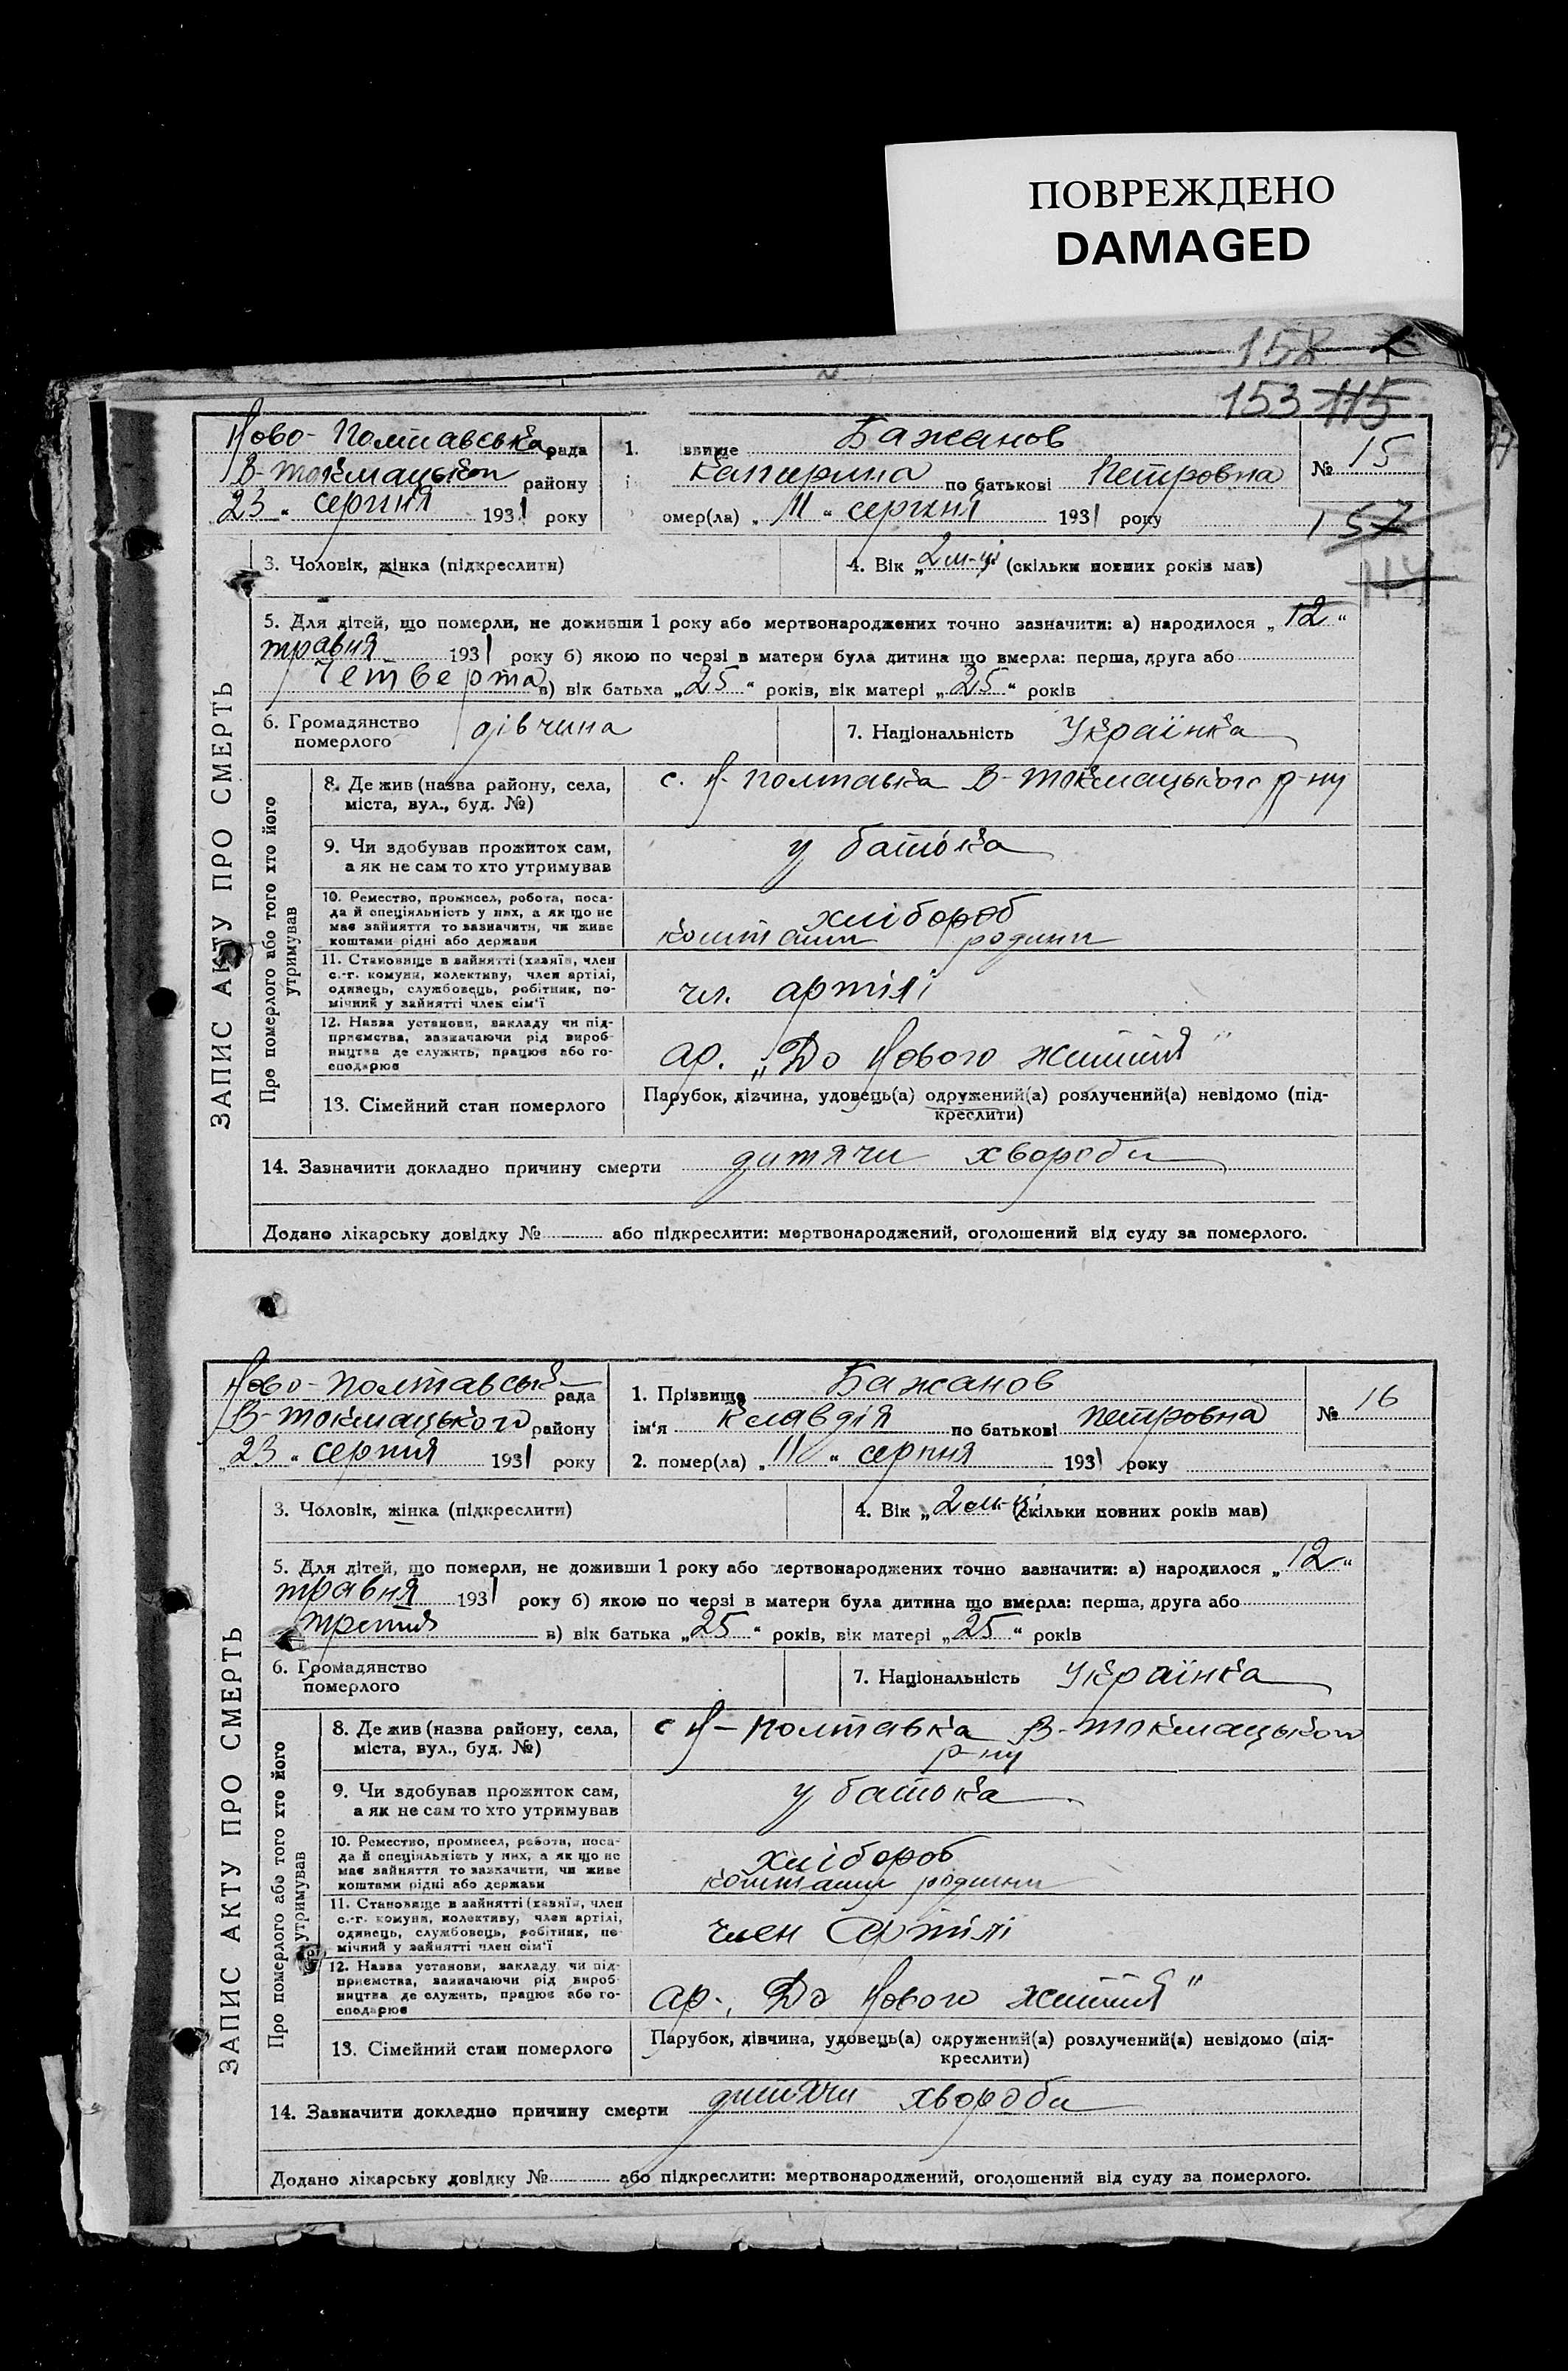 ПОВРЕЖДЕНО
DAMAGED
158
153 115
Ново-Полтавська рада
В-Токмацької району
23 " серпня 1931 року
1. звище Бажанов
Катерина по батькові Петровна
омер(ла) „ 11 " серпня 1931 року
№ 15
157
114
3. Чоловік, жінка (підкреслити)
4. Вік „ 2 м-ці (скільки повних років мав)
5. Для дітей, що померли, не доживши 1 року або мертвонароджених точно зазначити: а) народилося „ 12 "
травня 1931 року б) якою по черзі в матери була дитина що вмерла: перша, друга або
Четверта в) вік батька „ 25 " років, вік матері „ 25 " років
6. Громадянство
померлого
дівчина
7. Національність Українка
ЗАПИС АКТУ ПРО СМЕРТЬ
Про померлого або того хто його
утримував
8. Де жив (назва району, села,
міста, вул., буд. №)
с. Н-Полтавка В-Токмацького р-ну
9. Чи здобував прожиток сам,
а як не сам то хто утримував
у батька
10. Ремество, промисел, робота, поса-
да й спеціяльність у них, а як що не
має зайняття то зазначити, чи живе
коштами рідні або держави
хлібороб
коштами родини
11. Становище в зайнятті (хазяїн, член
с.-г. комуни, колективу, член артілі,
одинець, службовець, робітник, по-
мічний у зайнятті член сім'ї
чл. артілі
12. Назва установи, закладу чи під-
приємства, зазначаючи рід вироб-
ництва де служить, працює або го-
сподарює
ар. „До Нового життя"
13. Сімейний стан померлого
Парубок, дівчина, удовець(а) одружений(а) розлучений(а) невідомо (під-
креслити)
14. Зазначити докладно причину смерти дитячи хвороби
Додано лікарську довідку № або підкреслити: мертвонароджений, оголошений від суду за померлого.
Ново-Полтавськ рада
В-Токмацького району
„ 23 " серпня 1931 року
1. Прізвище Бажанов
ім'я Клавдія по батькові Петровна
2. помер(ла) „ 11 " серпня 1931 року
№ 16
3. Чоловік, жінка (підкреслити)
4. Вік „ 2 м-ці " (скільки повних років мав)
5. Для дітей, що померли, не доживши 1 року або мертвонароджених точно зазначити: а) народилося „ 12 "
травня 1931 року б) якою по черзі в матери була дитина що вмерла: перша, друга або
третя в) вік батька „ 25 " років, вік матері „ 25 " років
6. Громадянство
померлого
7. Національність Українка
ЗАПИС АКТУ ПРО СМЕРТЬ
Про померлого або того хто його
утримував
8. Де жив (назва району, села,
міста, вул., буд. №)
с Н-Полтавка В-Токмацького
р-ну
9. Чи здобував прожиток сам,
а як не сам то хто утримував
у батька
10. Ремество, промисел, робота, поса-
да й спеціяльність у них, а як що не
має зайняття то зазначити, чи живе
коштами рідні або держави
хлібороб
коштами родини
11. Становище в зайнятті (хазяїн, член
с.-г. комуни, колективу, член артілі,
одинець, службовець, робітник, по-
мічний у зайнятті член сім'ї
член Артілі
12. Назва установи, закладу чи під-
приємства, зазначаючи рід вироб-
ництва де служить, працює або го-
сподарює
ар. „До Нового життя"
13. Сімейний стан померлого
Парубок, дівчина, удовець(а) одружений(а) розлучений(а) невідомо (під-
креслити)
14. Зазначити докладно причину смерти дитячи хвороби
Додано лікарську довідку № або підкреслити: мертвонароджений, оголошений від суду за померлого.